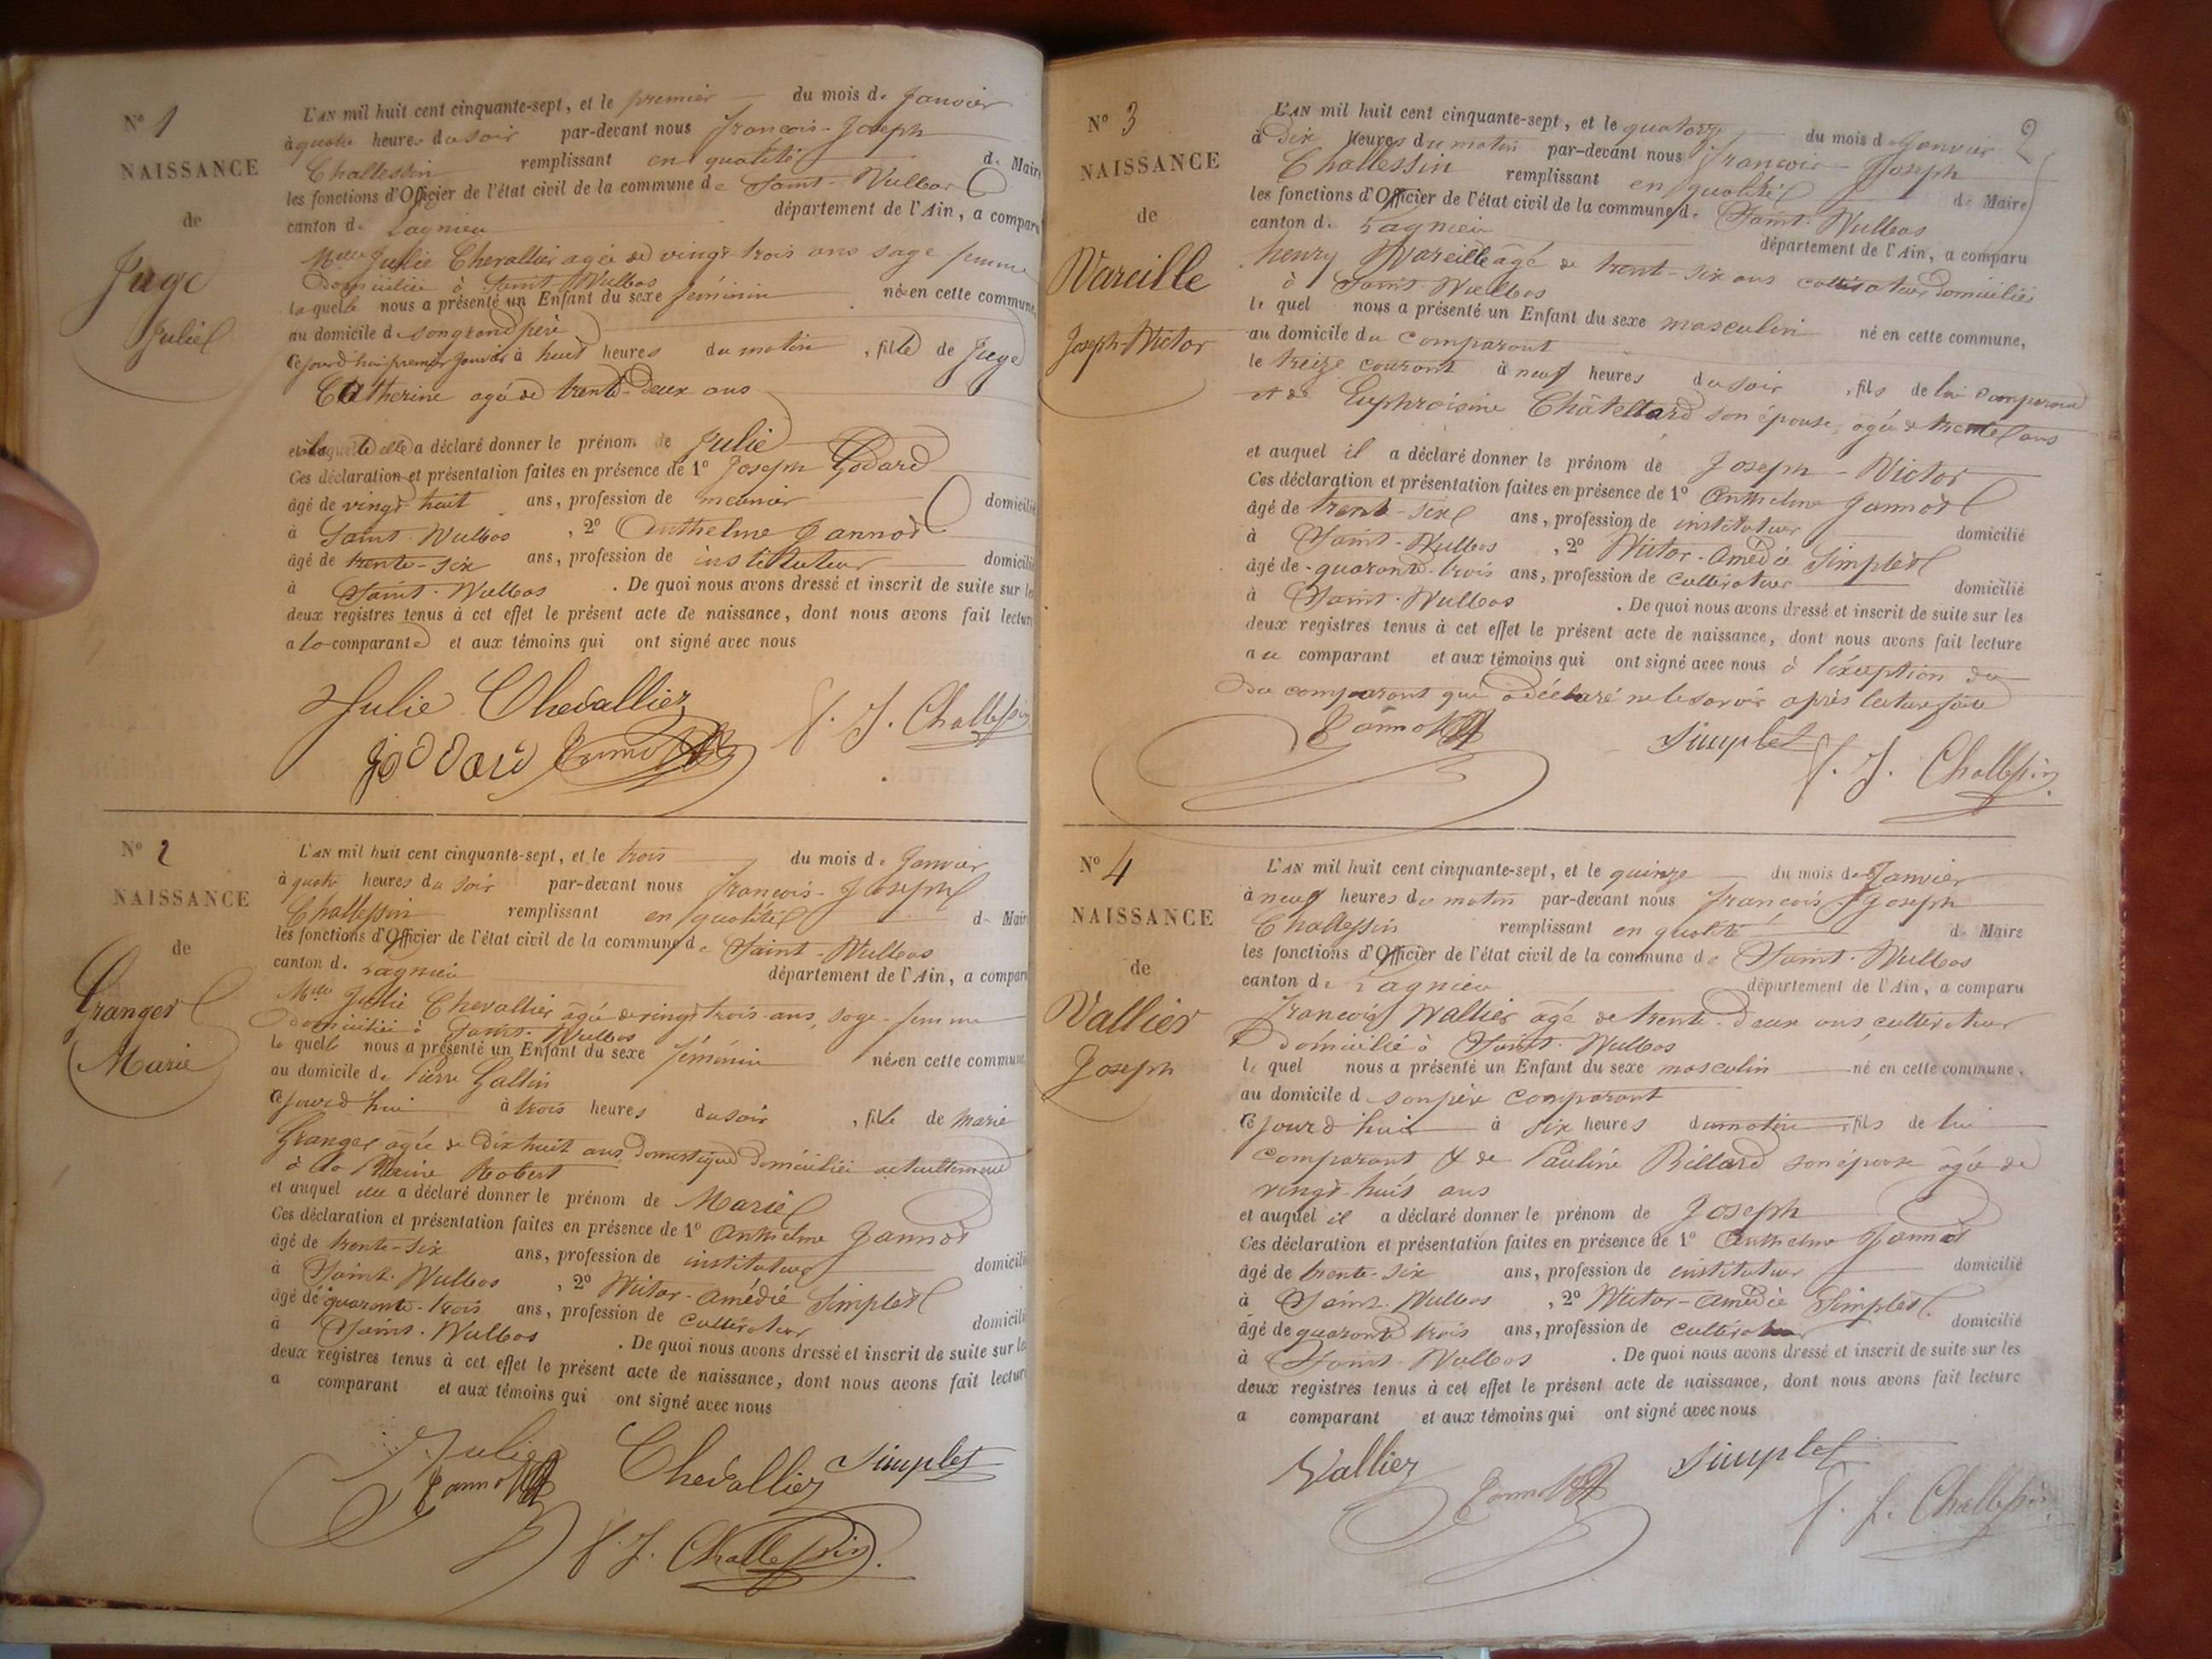 N° 1
NAISSANCE
de
Juge
Julie
L'AN mil huit cent cinquante-sept, et le premier du mois de Janvier
à quatre heures du soir par-devant nous François-Joseph
Challessin remplissant en qualité de Maire
les fonctions d'Officier de l'état civil de la commune de Saint-Vulbas
canton de Lagnieu département de l'Ain, a comparu
Melle Julie Chevallier agée de vingt trois ans sage femme
Domiciliée à Saint-Vulbas
laquelle nous a présenté un Enfant du sexe féminin née en cette commune,
au domicile de son grand père
Ce jourd'hui premier Janvier à huit heures du matin, fille de Juge
Catherine agée de trente-deux ans
et à laquelle elle a déclaré donner le prénom de Julie
Ces déclaration et présentation faites en présence de 1° Joseph Godard
âgé de vingt-huit ans, profession de meunier domicilié
à Saint-Vulbas, 2° Anthelme Jannot
âgé de trente-six ans, profession de instituteur domicilié
à Saint-Vulbas. De quoi nous avons dressé et inscrit de suite sur les
deux registres tenus à cet effet le présent acte de naissance, dont nous avons fait lecture
a la comparante et aux témoins qui ont signé avec nous
Julie Chevallier
F. J. Challessin
Goddard Jannot
N° 2
NAISSANCE
de
Granger
Marie
L'AN mil huit cent cinquante-sept, et le trois du mois de Janvier
à quatre heures du soir par-devant nous François-Joseph
Challessin remplissant en qualité de Maire
les fonctions d'Officier de l'état civil de la commune de Saint-Vulbas
canton de Lagnieu département de l'Ain, a comparu
Melle Julie Chevallier âgée de vingt trois ans, sage-femme
domiciliée à Saint-Vulbas
la quelle nous a présenté un Enfant du sexe féminin née en cette commune,
au domicile de Pierre Gallin
Ce jourd'hui à trois heures du soir, fille de Marie
Granger âgée de dix huit ans, domestique domiciliée actuellement
à la Robert
et auquel elle a déclaré donner le prénom de Marie
Ces déclaration et présentation faites en présence de 1° Anthelme Jannot
âgé de trente-six ans, profession de instituteur domicilié
à Saint-Vulbas, 2° Victor-Amédié Simplet
âgé de quarante-trois ans, profession de cultivateur domicilié
à Saint-Vulbas. De quoi nous avons dressé et inscrit de suite sur les
deux registres tenus à cet effet le présent acte de naissance, dont nous avons fait lecture
a comparant et aux témoins qui ont signé avec nous
Julie Chevallier Simplet
Jannot
F. J. Challessin
2
N° 3
NAISSANCE
de
Vareille
Joseph-Victor
L'AN mil huit cent cinquante-sept, et le quatorze du mois de Janvier
à Dix heures du matin par-devant nous François-Joseph
Challessin remplissant en qualité de Maire
les fonctions d'Officier de l'état civil de la commune de Saint-Vulbas
canton de Lagnieu département de l'Ain, a comparu
henry Vareille âgé de trente-six ans cultivateur domicilié
à Saint-Vulbas
le quel nous a présenté un Enfant du sexe masculin né en cette commune,
au domicile du comparant
le treize courant à neuf heures du soir, fils de lui comparant
et de Euphroisine Châtellard son épouse, agée de trente ans
et auquel il a déclaré donner le prénom de Joseph-Victor
Ces déclaration et présentation faites en présence de 1° Anthelme Jannot
âgé de trente-six ans, profession de instituteur domicilié
à Saint-Vulbas, 2° Victor-Amédié Simplet
âgé de quarante-trois ans, profession de cultivateur domicilié
à Saint-Vulbas. De quoi nous avons dressé et inscrit de suite sur les
deux registres tenus à cet effet le présent acte de naissance, dont nous avons fait lecture
a u comparant et aux témoins qui ont signé avec nous à l'éxeption du
du comparant qui a déclaré ne le savoir après lecture faite
Jannot Simplet F. J. Challessin
N° 4
NAISSANCE
de
Vallier
Joseph
L'AN mil huit cent cinquante-sept, et le quinze du mois de Janvier
à neuf heures du matin par-devant nous François-Joseph
Challessin remplissant en qualité de Maire
les fonctions d'Officier de l'état civil de la commune de Saint-Vulbas
canton de Lagnieu département de l'Ain, a comparu
François Vallier âgé de trente-deux ans, cultivateur
Domicilié à Saint-Vulbas
le quel nous a présenté un Enfant du sexe masculin né en cette commune,
au domicile de son père comparant
Ce jourd'hui à six heures du matin, fils de lui
comparant & de Pauline Billard son épouse âgée de
vingt-huit ans
et auquel il a déclaré donner le prénom de Joseph
Ces déclaration et présentation faites en présence de 1° Anthelme Jannot
âgé de trente-six ans, profession de instituteur domicilié
à Saint-Vulbas, 2° Victor-Amédié Simplet
âgé de quarante trois ans, profession de cultivateur domicilié
à Saint-Vulbas. De quoi nous avons dressé et inscrit de suite sur les
deux registres tenus à cet effet le présent acte de naissance, dont nous avons fait lecture
a comparant et aux témoins qui ont signé avec nous
Vallier Jannot Simplet
F. J. Challessin